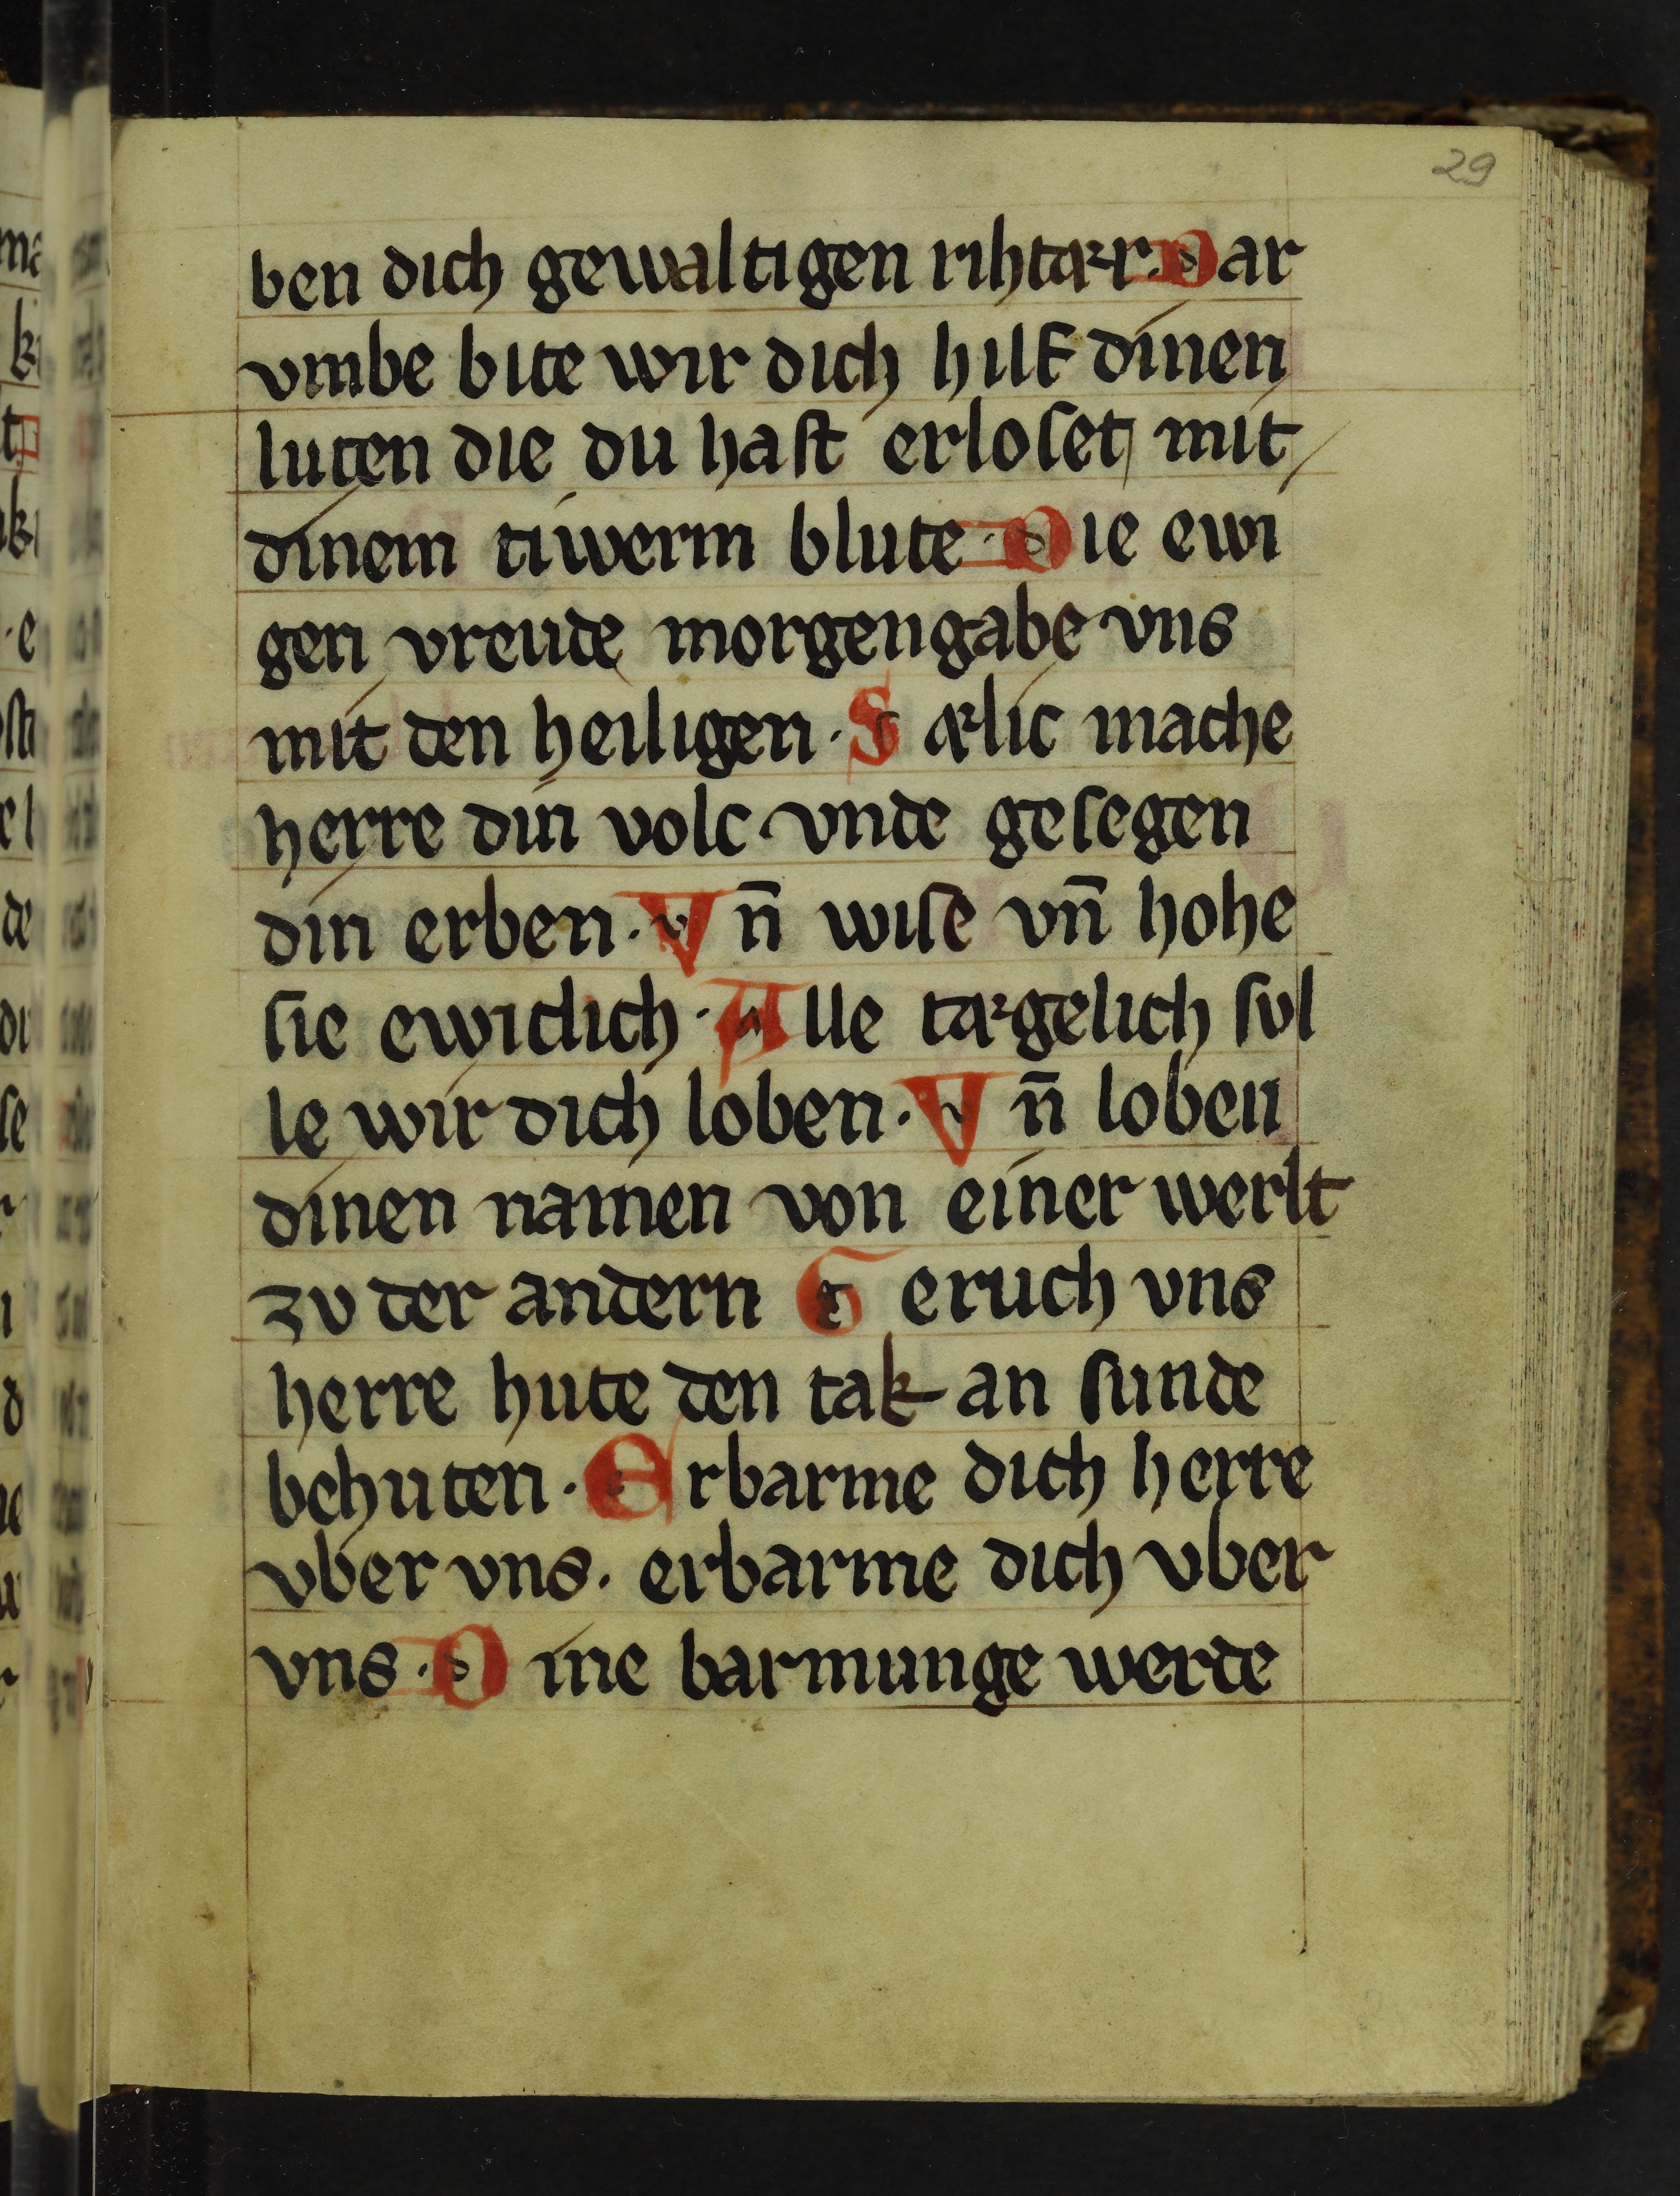 29
ben dich gewaltigen rihtær. Dar
vmbe bite wir dich hilf dinen
luten die du haſt erloſet mit
dinem tiwerm blute. Die ewi
gen vreude morgengabe vns
mit den heiligen. Sælic mache
herre din volc. vnde geſegen
din erben. Vn̄ wiſe vn̄ hohe
ſie ewiclich. Alle tægelich ſvl
le wir dich loben. Vn̄ loben
dinen namen von einer werlt
zv der andern Geruch vns
herre hute den tak an ſunde
behuten. Erbarme dich herre
vber vns. erbarme dich vber
vns. Dine barmunge werde